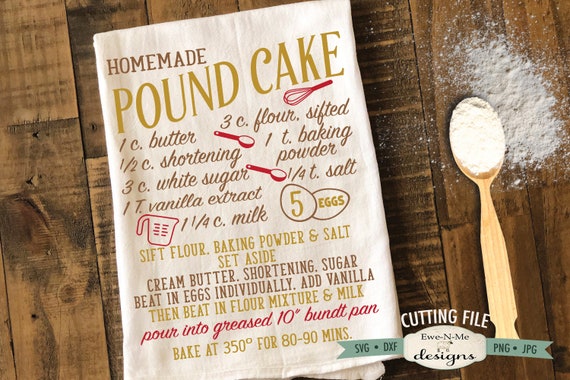 HOMEMADE
POUND CAKE
3 c. flour, sifted
1 c. butter
1 t. baking powder
1/2 c. shortening
3 c. white sugar
1/4 t. salt
1 T. vanilla extract
5 EGGS
1 1/4 c. milk
SIFT FLOUR, BAKING POWDER & SALT
SET ASIDE
CREAM BUTTER, SHORTENING, SUGAR
BEAT IN EGGS INDIVIDUALLY, ADD VANILLA
THEN BEAT IN FLOUR MIXTURE & MILK
pour into greased 10" bundt pan
BAKE AT 350° FOR 80-90 MINS.
CUTTING FILE
SVG • DXF
Ewe-N-Me
designs
PNG • JPG